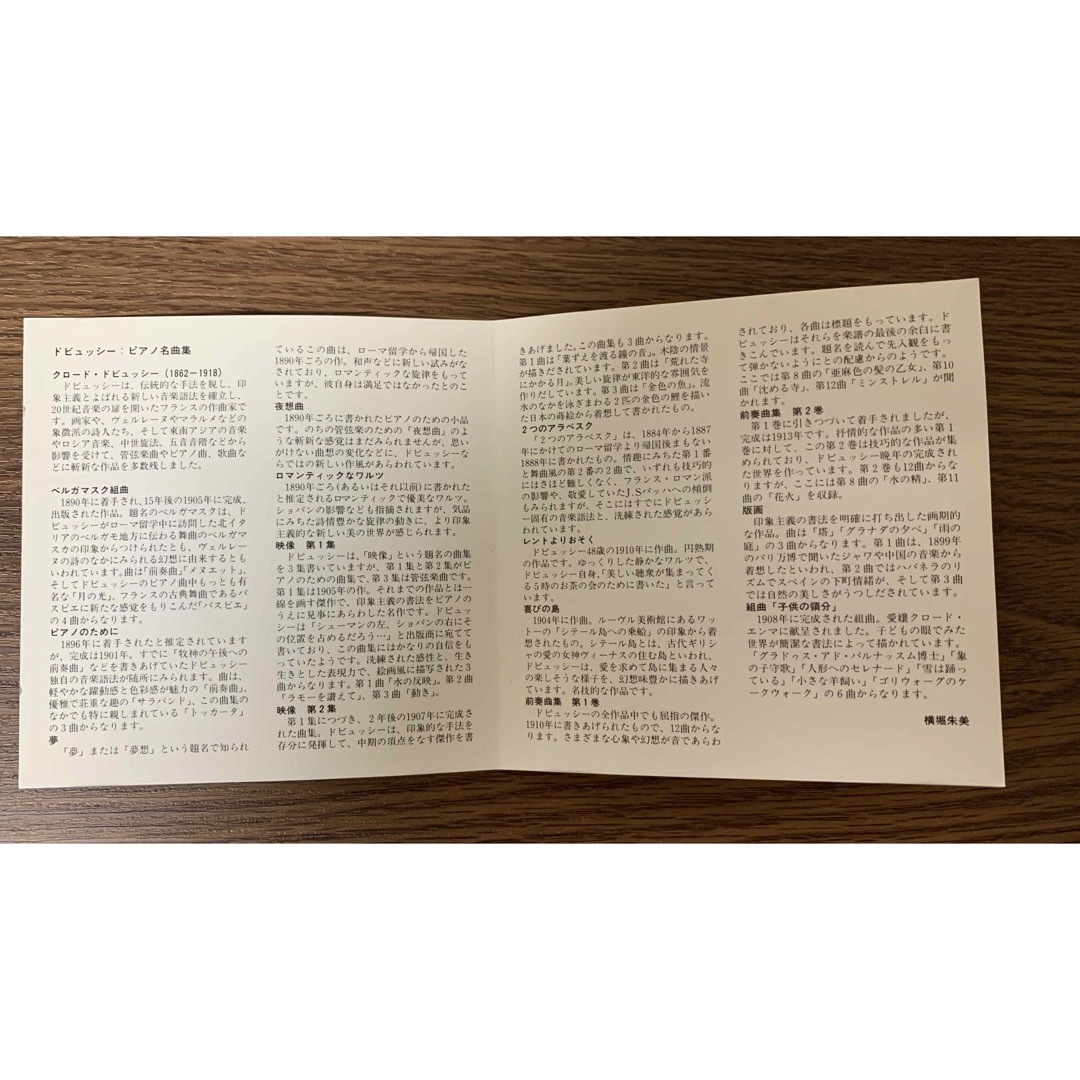 ドビュッシー：ピアノ名曲集
クロード・ドビュッシー（1862－1918）
ドビュッシーは、伝統的な手法を脱し、印
象主義とよばれる新しい音楽語法を確立し、
20世紀音楽の扉を開いたフランスの作曲家で
す。画家や、ヴェルレーヌやマラルメなどの
象徴派の詩人たち、そして東南アジアの音楽
やロシア音楽、中世旋法、五音音階などから
影響を受けて、管弦楽曲やピアノ曲、歌曲な
どに斬新な作品を多数残しました。
ベルガマスク組曲
1890年に着手され、15年後の1905年に完成、
出版された作品。題名のベルガマスクは、ド
ビュッシーがローマ留学中に訪問した北イタ
リアのベルガモ地方に伝わる舞曲のベルガマ
スカの印象からつけられたとも、ヴェルレー
ヌの詩のなかにみられる幻想に由来するとも
いわれています。曲は「前奏曲」「メヌエット」、
そしてドビュッシーのピアノ曲中もっとも有
名な「月の光」、フランスの古典舞曲であるパ
スピエに新たな感覚をもりこんだ「パスピエ」
の４曲からなります。
ピアノのために
1896年に着手されたと推定されています
が、完成は1901年。すでに「牧神の午後への
前奏曲」などを書きあげていたドビュッシー
独自の音楽語法が随所にみられます。曲は、
軽やかな躍動感と色彩感が魅力の「前奏曲」、
優雅で荘重な趣の「サラバンド」、この曲集の
なかでも特に親しまれている「トッカータ」
の３曲からなります。
夢
「夢」または「夢想」という題名で知られ
ているこの曲は、ローマ留学から帰国した
1890年ごろの作。和声などに新しい試みがな
されており、ロマンティックな旋律をもって
いますが、彼自身は満足ではなかったとのこ
とです。
夜想曲
1890年ごろに書かれたピアノのための小品
です。のちの管弦楽のための「夜想曲」のよ
うな斬新な感覚はまだみられませんが、思い
がけない曲想の変化などに、ドビュッシーな
らではの新しい作風があらわれています。
ロマンティックなワルツ
1890年ごろ（あるいはそれ以前）に書かれた
と推定されるロマンティックで優美なワルツ。
ショパンの影響なども指摘されますが、気品
にみちた詩情豊かな旋律の動きに、より印象
主義的な新しい美の世界が感じられます。
映像　第１集
ドビュッシーは、「映像」という題名の曲集
を３集書いていますが、第１集と第２集がピ
アノのための曲集で、第３集は管弦楽曲です。
第１集は1905年の作。それまでの作品とは一
線を画す傑作で、印象主義の書法をピアノの
うえに見事にあらわした名作です。ドビュッ
シーは「シューマンの左、ショパンの右にそ
の位置を占めるだろう…」と出版商に宛てて
書いており、この曲集にはかなりの自信をも
っていたようです。洗練された感性と、生き
生きとした表現力で、絵画風に描写された３
曲からなります。第１曲「水の反映」。第２曲
「ラモーを讃えて」、第３曲「動き」。
映像　第２集
第１集につづき、２年後の1907年に完成さ
れた曲集。ドビュッシーは、印象的な手法を
存分に発揮して、中期の頂点をなす傑作を書
きあげました。この曲集も３曲からなります。
第１曲は「葉ずえを渡る鐘の音」。木陰の情景
が描きだされています。第２曲は「荒れた寺
にかかる月」。美しい旋律が東洋的な雰囲気を
作りだしています。第３曲は「金色の魚」。流
水のなかを泳ぎまわる２匹の金色の鯉を描い
た日本の蒔絵から着想して書かれたもの。
２つのアラベスク
「２つのアラベスク」は、1884年から1887
年にかけてのローマ留学より帰国後まもない
1888年に書かれたもの。情趣にみちた第１番
と舞曲風の第２番の２曲で、いずれも技巧的
にはさほど難しくなく、フランス・ロマン派
の影響や、敬愛していたJ.Sバッハへの傾倒
もみられますが、そこにはすでにドビュッシ
ー固有の音楽語法と、洗練された感覚があら
われています。
レントよりおそく
ドビュッシー48歳の1910年に作曲。円熟期
の作品です。ゆっくりした静かなワルツで、
ドビュッシー自身、「美しい聴衆が集まってく
る５時のお茶の会のために書いた」と言って
います。
喜びの島
1904年に作曲。ルーヴル美術館にあるワッ
トーの「シテール島への乗船」の印象から着
想されたもの。シテール島とは、古代ギリシ
ャの愛の女神ヴィーナスの住む島といわれ、
ドビュッシーは、愛を求めて島に集まる人々
の楽しそうな様子を、幻想味豊かに描きあげ
ています。名技的な作品です。
前奏曲集　第１巻
ドビュッシーの全作品中でも屈指の傑作。
1910年に書きあげられたもので、12曲からな
ります。さまざまな心象や幻想が音であらわ
されており、各曲は標題をもっています。ド
ビュッシーはそれらを楽譜の最後の余白に書
きこんでいます。題名を読んで先入観をもっ
て弾かないようにとの配慮からのようです。
ここでは第８曲の「亜麻色の髪の乙女」、第10
曲「沈める寺」、第12曲「ミンストレル」が聞
かれます。
前奏曲集　第２巻
第１巻に引きつづいて着手されましたが、
完成は1913年です。抒情的な作品の多い第１
巻に対して、この第２巻は技巧的な作品が集
められており、ドビュッシー晩年の完成され
た世界を作っています。第２巻も12曲からな
りますが、ここには第８曲の「水の精」、第11
曲の「花火」を収録。
版画
印象主義の書法を明確に打ち出した画期的
な作品。曲は「塔」「グラナダの夕べ」「雨の
庭」の３曲からなります。第１曲は、1899年
のパリ万博で聞いたジャワや中国の音楽から
着想したといわれ、第２曲ではハバネラのリ
ズムでスペインの下町情緒が、そして第３曲
では自然の美しさがうつしだされています。
組曲「子供の領分」
1908年に完成された組曲。愛嬢クロード・
エンマに献呈されました。子どもの眼でみた
世界が簡潔な書法によって描かれています。
「グラドゥス・アド・パルナッスム博士」「象
の子守歌」「人形へのセレナード」「雪は踊っ
ている」「小さな羊飼い」「ゴリウォーグのケ
ークウォーク」の６曲からなります。
横堀朱美